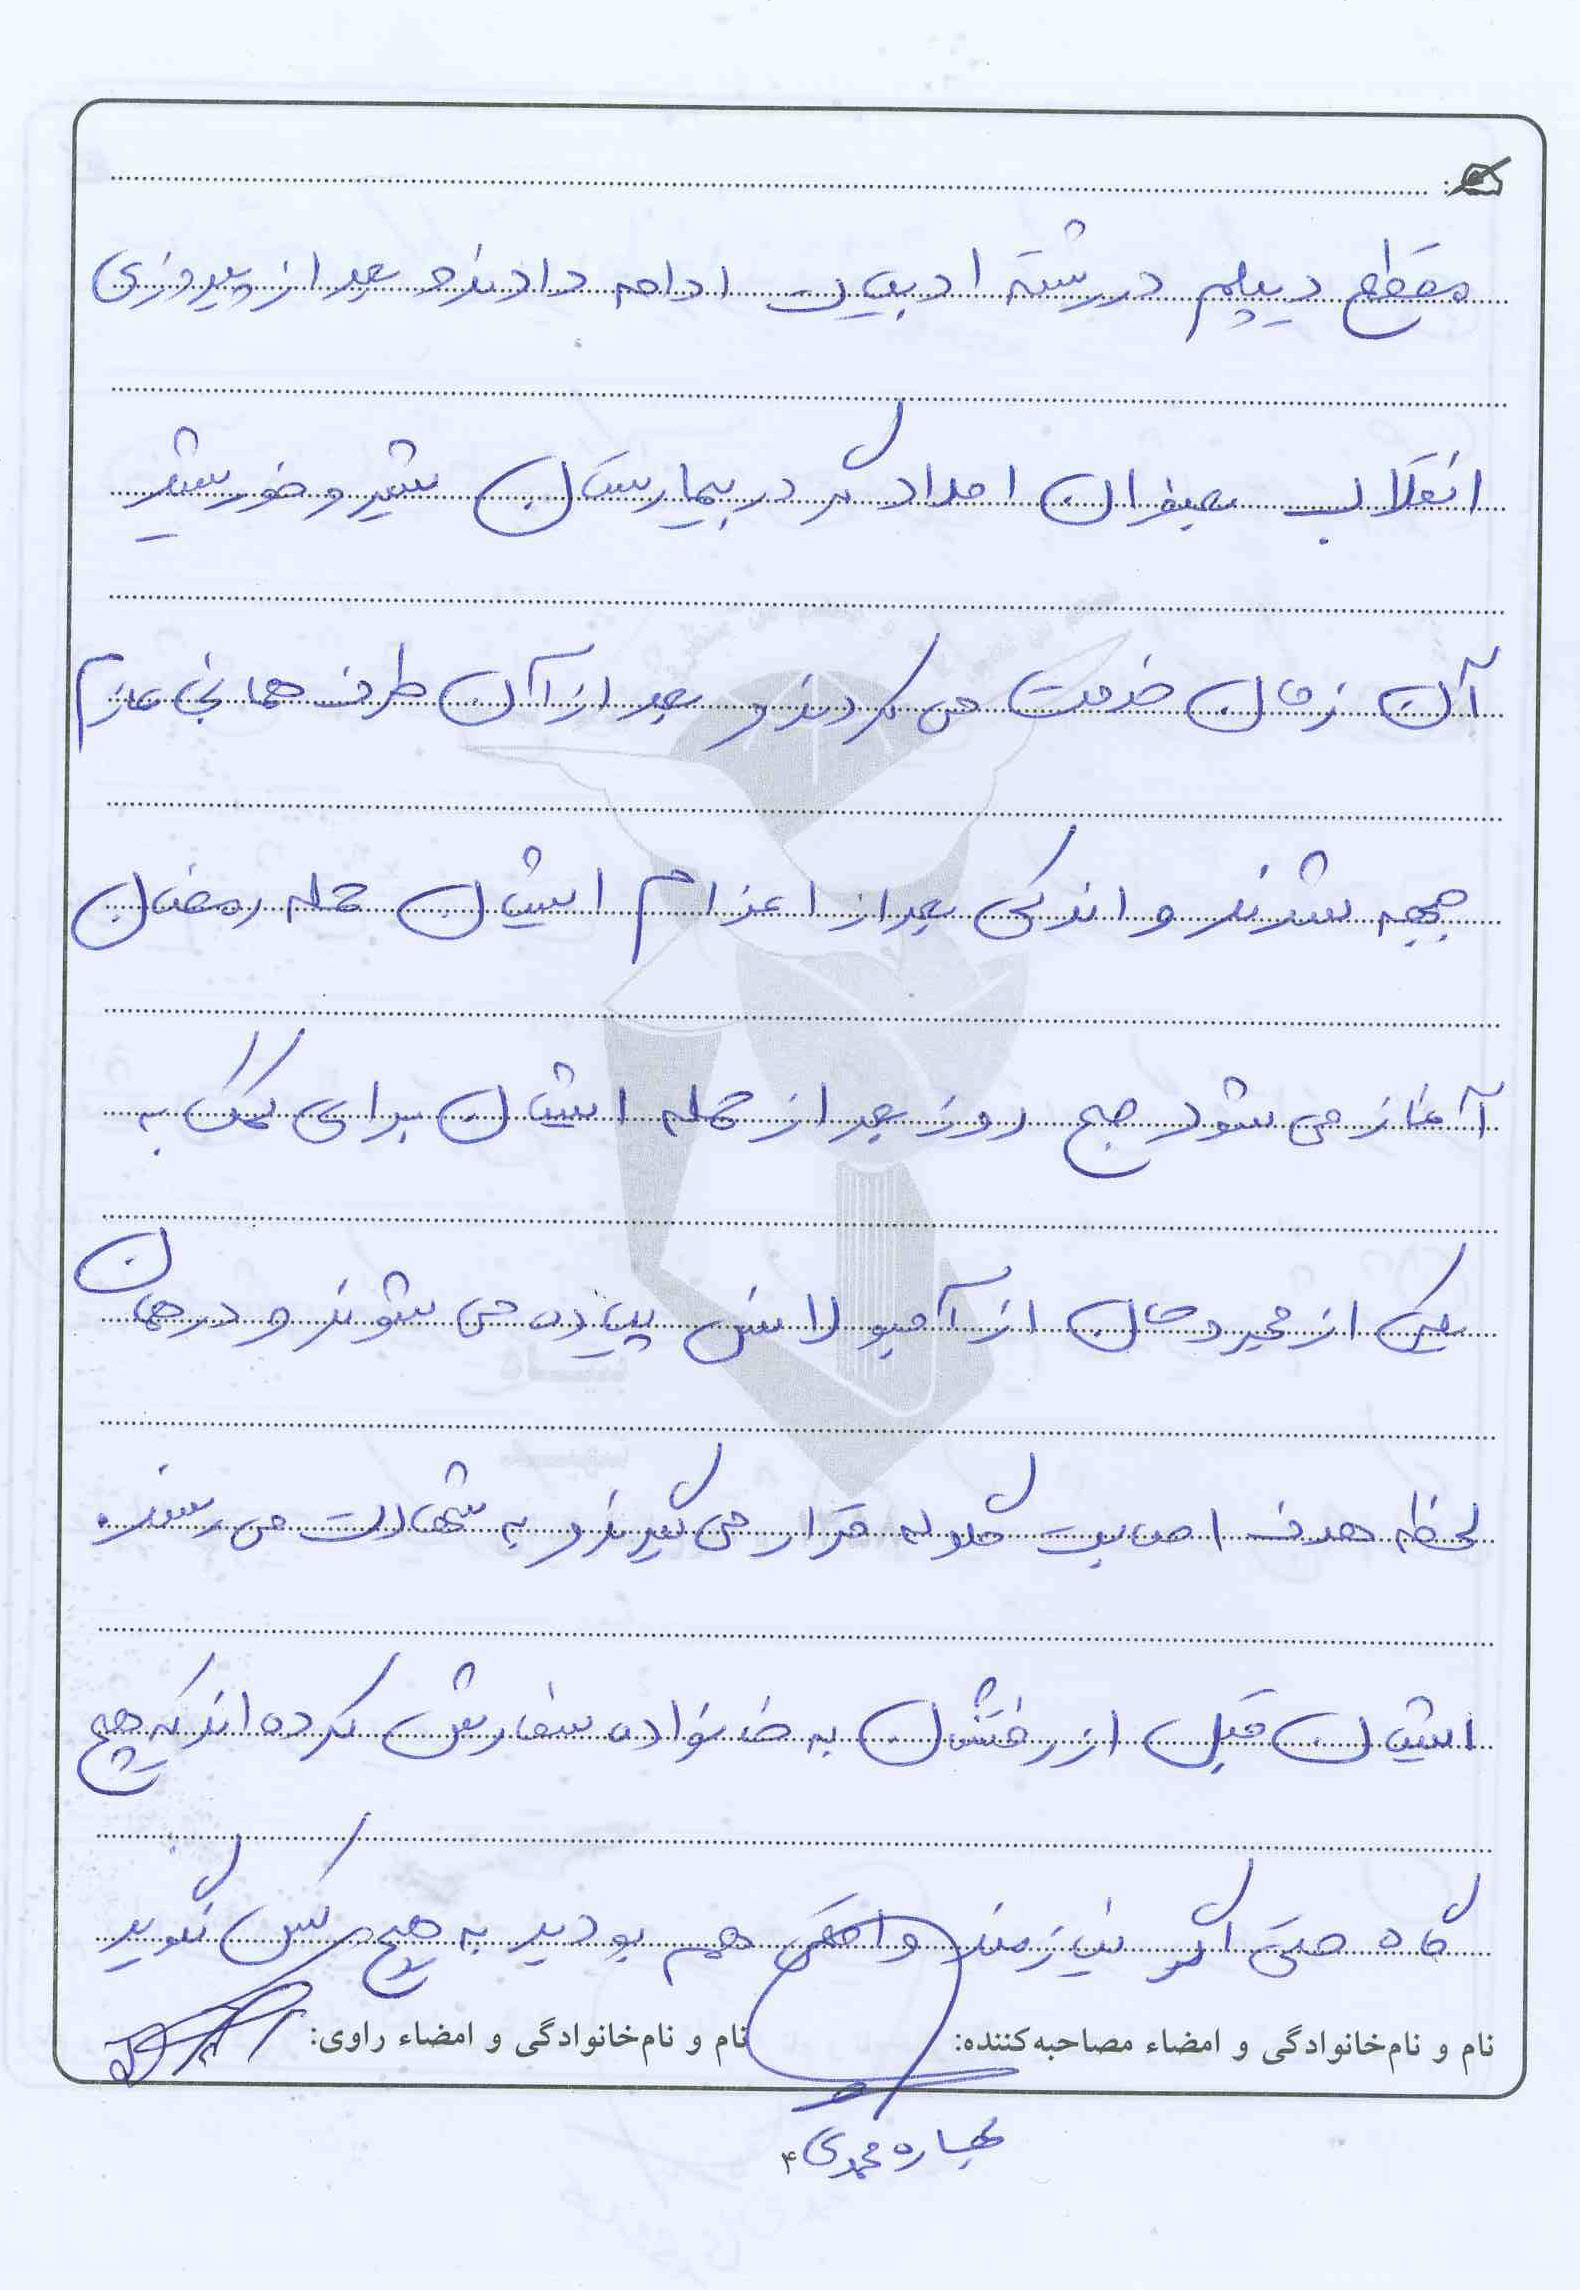 مقطع دیپلم در رشته ادبیات ادامه دادند و بعد از پیروزی
انقلاب بعنوان امدادگر در بیمارستان شیر و خورشید
آن زمان خدمت می کردند و بعد از آن طرف همانجا عازم
جبهه شدند و اندکی بعد از اعزام ایشان حمله رمضان
آغاز می شود صبح روز بعد از حمله ایشان برای کمک به
یکی از مجروحان از آمبولانس پیاده می شوند و در همان
لحظه هدف اصابت گلوله قرار می گیرند و به شهادت می رسند.
ایشان قبل از رفتنشان به خانواده سفارش کرده اند که هیچ
گاه حتی اگر نیازمند واقعی هم بودید به هیچ کس نگویید
نام و نام‌خانوادگی و امضاء مصاحبه‌کننده: نام و نام‌خانوادگی و امضاء راوی:
بهاره محمدی
۴